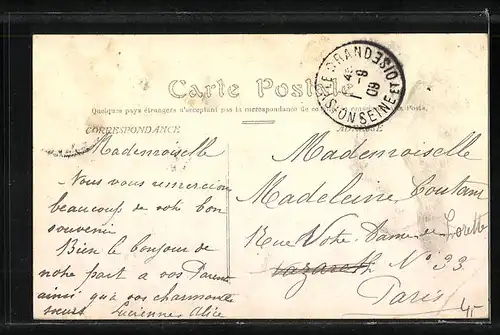 Carte Postale
Quelques pays étrangers n'acceptant pas la correspondance de ce
CORRESPONDANCE
ADRESSE
SEINE ET OISE
8
09
Mademoiselle
Nous vous remercions
beaucoup de votre bon
souvenir
Bien le bonjour de
notre part a vos Parents
ainsi qu'a vos charmantes
sœurs Lucienne Alice
Mademoiselle
Madeleine Coutant
Rue Notre Dame de Lorette
Nazareth N° 33
Paris